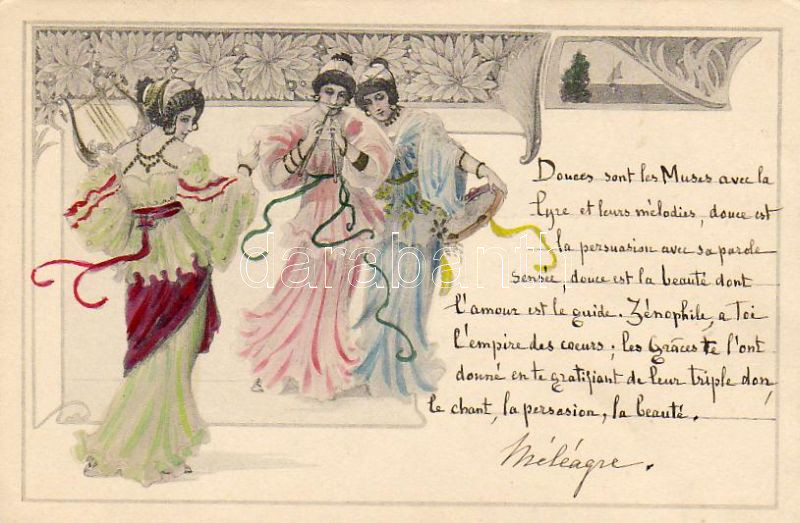 Douces sont les Muses avec la
lyre et leurs mélodies, douce est
la persuasion avec sa parole
sensée, douce est la beauté dont
l'amour est le guide. Zénophile, a toi
l'empire des coeurs; les Grâces te l'ont
donné en te gratifiant de leur triple don,
le chant, la persasion, la beauté.
Méléagre.
darabanth